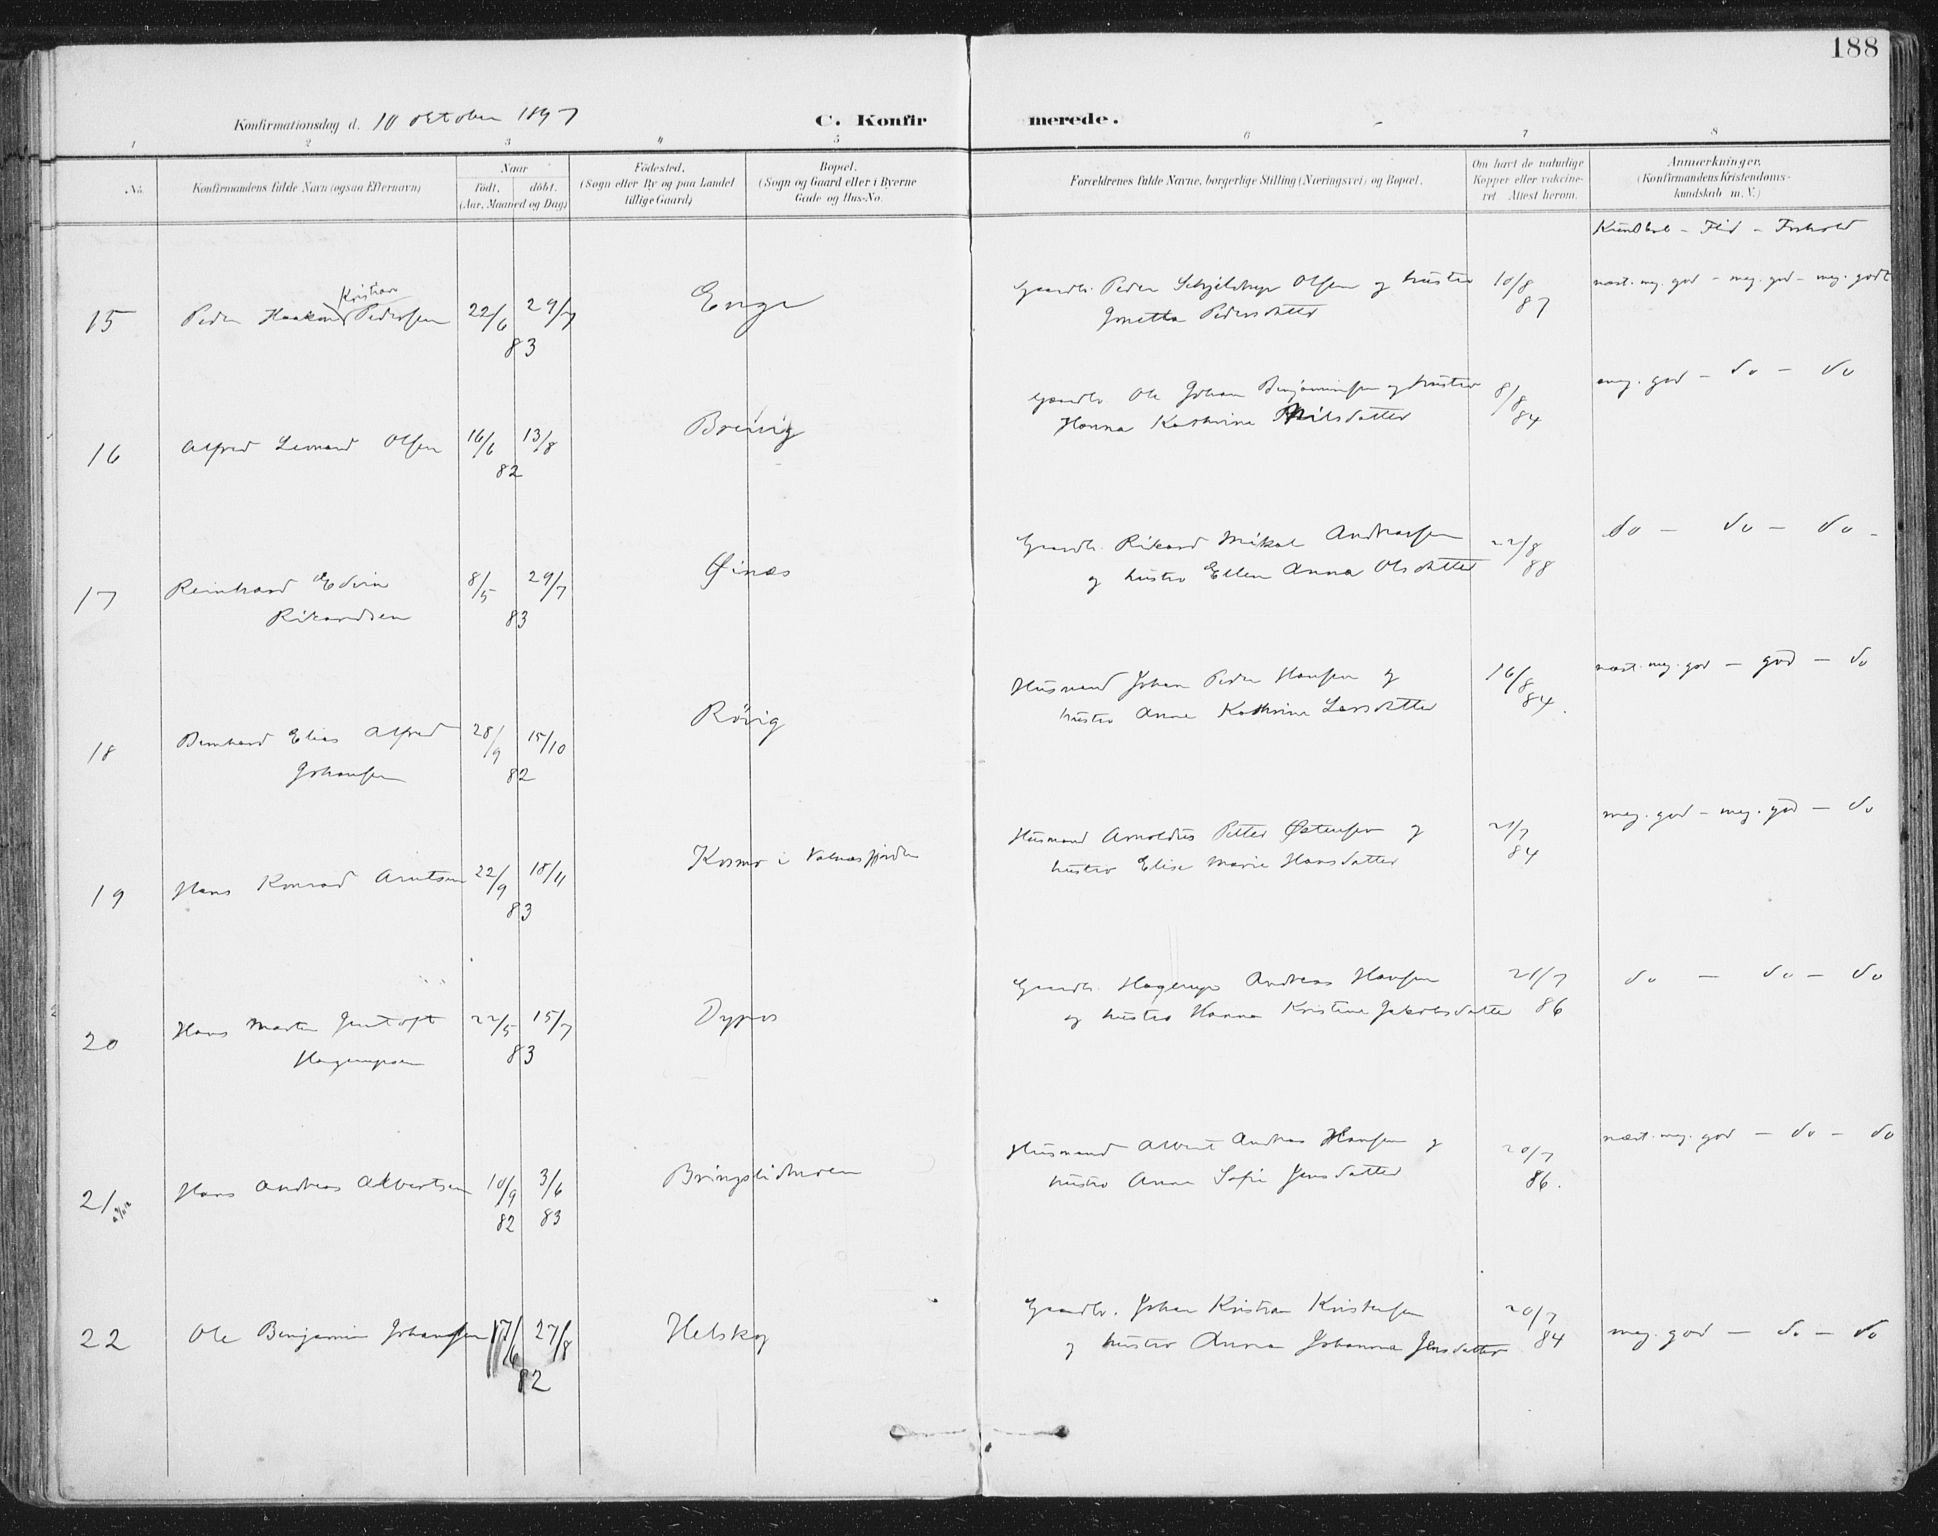 188
Konfirmationsdag d. 10 oktober 1897 C. Konfirmerede.
1 2 3 4 5 6 7 8
No. Konfirmandens fulde Navn (ogsaa Efternavn) Naar født. døbt. (Aar, Maaned og Dag) Fødested. (Sogn eller By og paa Landet tillige Gaard) Bopæl. (Sogn og Gaard eller i Byerne Gade og Hus-No. Forældrenes fulde Navne, borgerlige Stilling (Næringsvei) og Bopæl. Om havt de naturlige Kopper eller vakcineret Attest herom. Anmærkninger. (Konfirmandens Kristendomskundskab m. V.)
Kundskab - Flid - Forhold
Gaardbr. Peder Schjelderup Olsen og hustru 10/8 næst. mg. god - meg. god - meg. godt
Kristian
15 Peder Haakon Pedersen 22/6 29/7 Enge Jonetta Pedersdatter 87
83
Gaardbr. Ole Johan Benjaminsen og hustru 8/8 meg. god - do - do
16 Alfred Leonard Olsen 16/6 13/8 Breivig Hanna Kathrine Nilsdatter 84
82
Gaardbr. Rikard Mikal Andreassen 22/8 do - do - do -
17 Reinhard Edvin 8/5 29/7 Øinæs og hustru Ellen Anna Olsdatter 88
Rikardsen 83
Husmand Johan Peder Hansen og 16/8 næst. meg. god - god - do
18 Bernhard Elias Alfred 28/9 15/10 Røvig hustru Anne Kathrine Larsdatter 84.
Johansen 82
Husmand Arnoldus Petter Østensen og 21/7 meg. god - meg. god - do
19 Hans Konrad Arntsen 22/9 18/11 Kosmo i Valnæsfjorden hustru Elise Marie Hansdatter 84
83
Gaardbr. Hagerup Andreas Hansen 21/7 do - do - do
20 Hans Martin Jentoft 22/5 15/7 Dypos og hustru Hanna Kristine Jakobsdatter 86
Hagerupsen 83
Husmand Albert Andreas Hansen og 20/7 næst. meg. god - do - do
21 Hans Andreas Albertsen 10/9 3/6 Bringslidmoen hustru Anne Sofie Jensdatter 86.
82 83
Gaardbr. Johan Kristian Kristensen 20/7
22 Ole Benjamin Johansen 17/6 27/8 Helskog og hustru Anna Johanna Jensdatter 84 meg. god - do - do
82